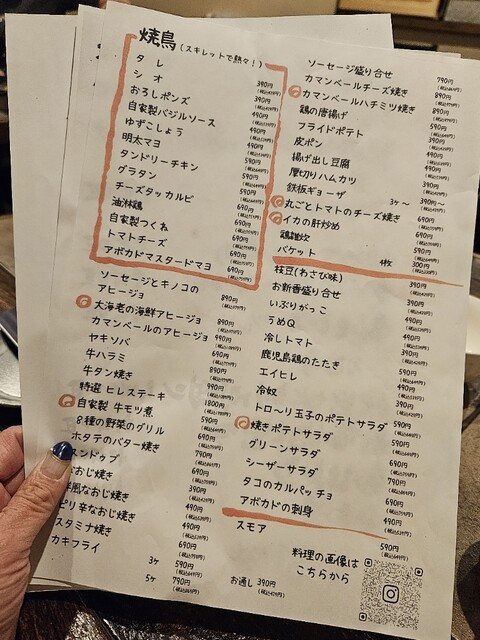 焼鳥(スキレットで熱々!)
タレ 390円
シオ 390円
おろしポンズ 490円
自家製バジルソース 490円
ゆずこしょう 490円
明太マヨ 490円
タンドリーチキン 590円
グラタン 590円
チーズタッカルビ 690円
油淋鶏 690円
自家製つくね 690円
トマトチーズ 690円
アボカドマスタードマヨ 690円
ソーセージとキノコの
アヒージョ 890円
大海老の海鮮アヒージョ 890円
カマンベールのアヒージョ 990円
ヤキソバ 690円
牛ハラミ 890円
牛タン焼き 990円
特選 ヒレステーキ 1800円
自家製 牛モツ煮 590円
8種の野菜のグリル 690円
ホタテのバター焼き 790円
スンドゥブ 690円
おじ焼き 390円
風なおじ焼き 490円
ピリ辛なおじ焼き 490円
スタミナ焼き 690円
カキフライ 3ケ 590円
5ケ 790円
ソーセージ盛り合せ 790円
カマンベールチーズ焼き 890円
カマンベールハチミツ焼き 890円
鶏の唐揚げ 590円
フライドポテト 490円
皮ポン 390円
揚げ出し豆腐 490円
厚切りハムカツ 490円
鉄板ギョーザ 3ヶ〜 390円〜
丸ごとトマトのチーズ焼き 690円
イカの肝炒め 690円
鶏雑炊 590円
バケット 4枚 300円
枝豆(わさび味) 390円
お新香盛り合せ 390円
いぶりがっこ 390円
うめQ 490円
冷しトマト 390円
鹿児島鶏のたたき 690円
エイヒレ 590円
冷奴 390円
トロ〜リ玉子のポテトサラダ 590円
焼きポテトサラダ 590円
グリーンサラダ 590円
シーザーサラダ 690円
タコのカルパッチョ 790円
アボカドの刺身 490円
スモア 590円
料理の画像は
こちらから
お通し 390円